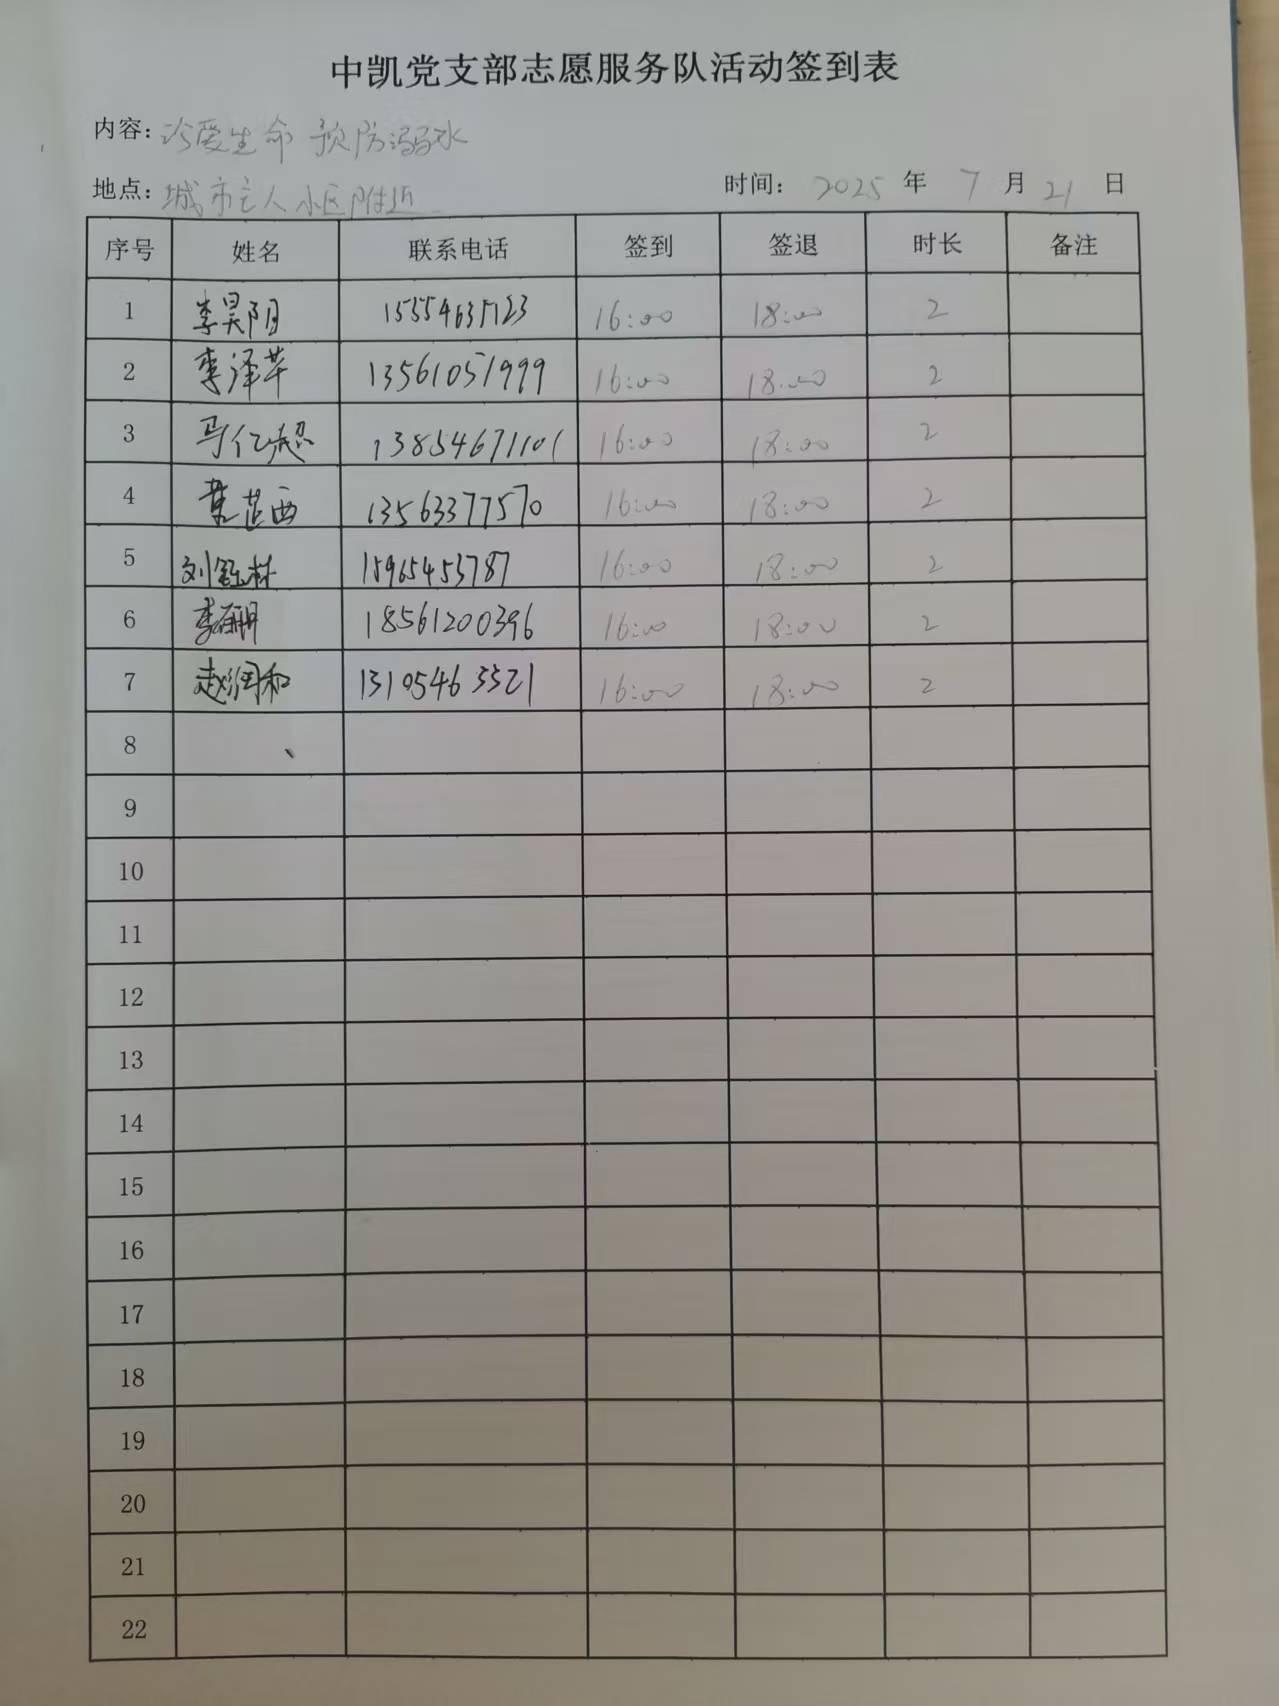 中凯党支部志愿服务队活动签到表
内容：珍爱生命 预防溺水
地点：城市主人小区附近 时间：2025 年 7 月 21 日
序号 姓名 联系电话 签到 签退 时长 备注
1 李昊阳 15554635123 16:00 18:00 2
2 李泽华 13561051999 16:00 18:00 2
3 马亿超 13854671101 16:00 18:00 2
4 芷西 13563377570 16:00 18:00 2
5 刘钰林 15965453787 16:00 18:00 2
6 李 18561200396 16:00 18:00 2
7 赵润和 13105463321 16:00 18:00 2
8
9
10
11
12
13
14
15
16
17
18
19
20
21
22